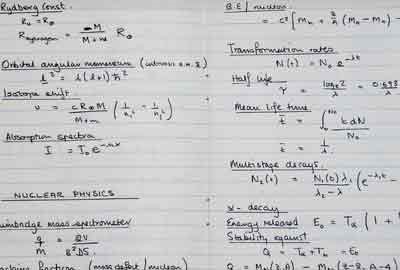 Rydberg const.
R∞ = R∞
R hydrogen = M / M+m R∞
Orbital angular momentum (intrinsic
l² = l(l+1)ħ²
Isotope shift.
ν = cR∞M / M+m (1/n₁² - 1/n₂²)
Absorption spectra
I = I₀e
NUCLEAR PHYSICS
mass spectrometer
q/M =
fraction (mass defect / nucleon)
B.E / nucleon
= c² [Mn + Z/A (MH - Mn) -
Transformation rates
N(t) = N₀ e^-λt
Half life
τ = loge2 / λ = 0.693
Mean life time
t̄ = ∫ t dN / N₀
t̄ = 1/λ
Multistage decays.
N₂(t) = N₁(0)λ₁ / λ₂ - λ₁ (e^-λ₁t -
α - decay
Energy released E₀ = Tα (1 +
Stability against
Q = Tα + Tb = E₀
Q = (Z, A) - (Z-2, A-4)